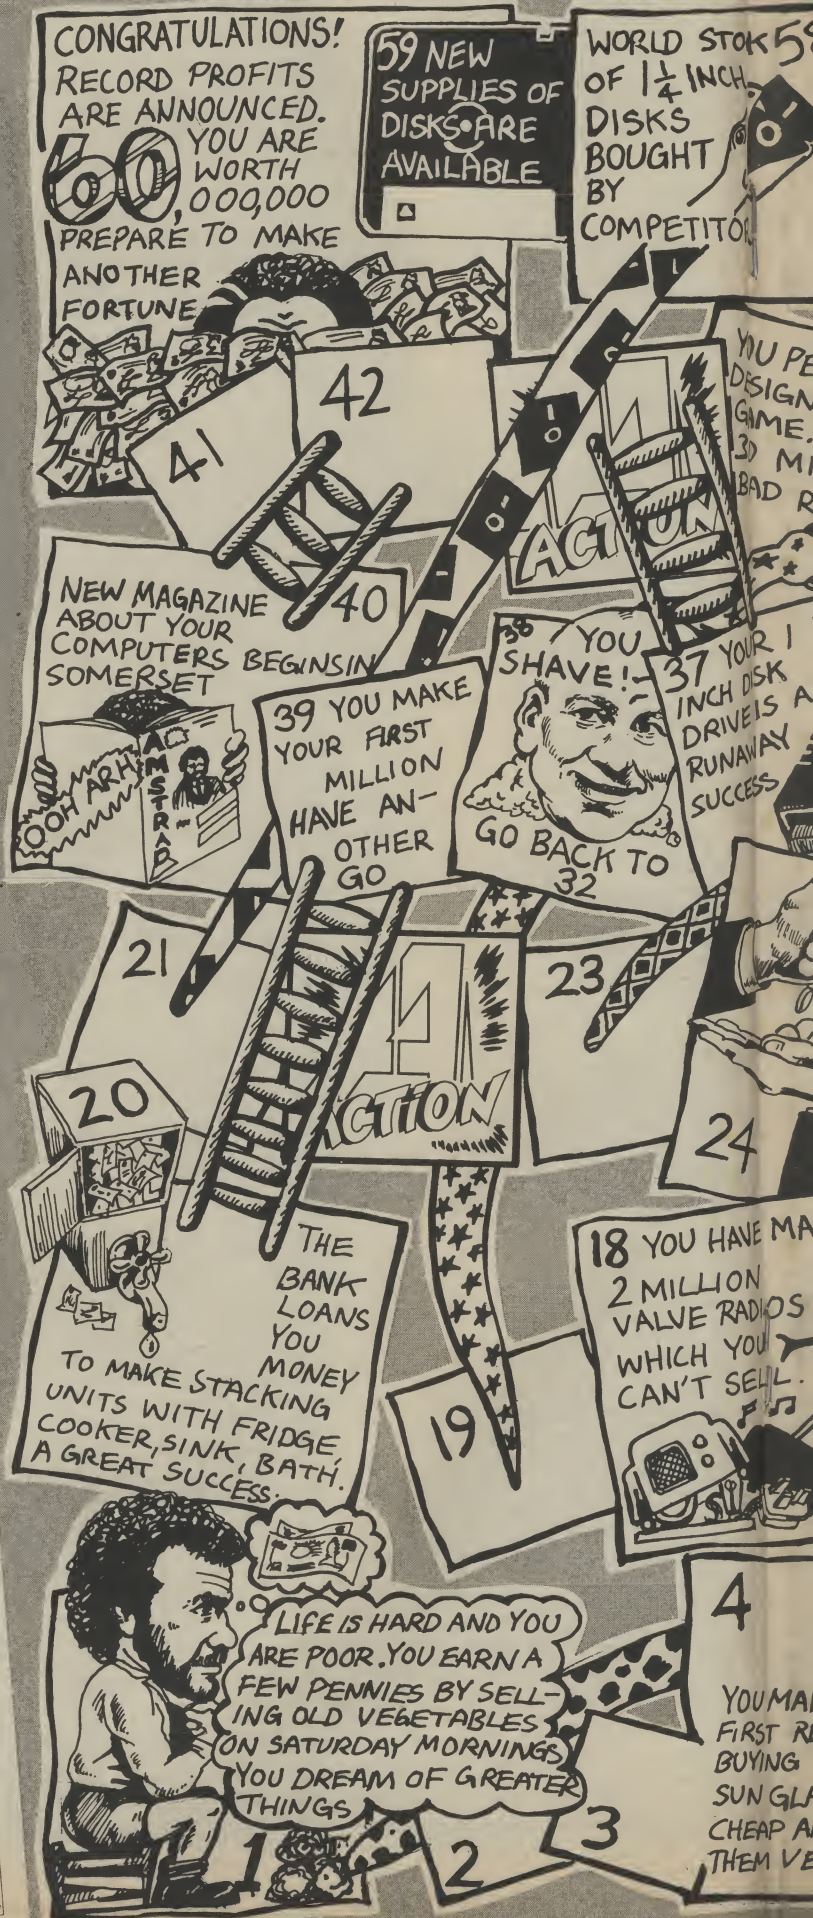 CONGRATULATIONS!
RECORD PROFITS
ARE ANNOUNCED.
60
YOU ARE
WORTH
,000,000
PREPARE TO MAKE
ANOTHER
FORTUNE
59 NEW
SUPPLIES OF
DISKS ARE
AVAILABLE
WORLD STOK 58
OF 1¼ INCH
DISKS
BOUGHT
BY
COMPETITOR
41
42
ACTION
YOU PE
DESIGN
GAME.
3D MI
BAD R
40
NEW MAGAZINE
ABOUT YOUR
COMPUTERS BEGINS IN
SOMERSET
OOH ARH
AMSTRAD
39 YOU MAKE
YOUR FIRST
MILLION
HAVE AN-
OTHER
GO
38
YOU
SHAVE!
GO BACK TO
32
37 YOUR 1
INCH DISK
DRIVE IS A
RUNAWAY
SUCCESS
21
ACTION
23
24
20
THE
BANK
LOANS
YOU
MONEY
TO MAKE STACKING
UNITS WITH FRIDGE,
COOKER, SINK, BATH.
A GREAT SUCCESS.
19
18 YOU HAVE MA
2 MILLION
VALVE RADIOS
WHICH YOU
CAN'T SELL.
LIFE IS HARD AND YOU
ARE POOR. YOU EARN A
FEW PENNIES BY SELL-
ING OLD VEGETABLES
ON SATURDAY MORNINGS
YOU DREAM OF GREATER
THINGS
1
2
3
4
YOU MA
FIRST R
BUYING
SUN GLA
CHEAP A
THEM VE